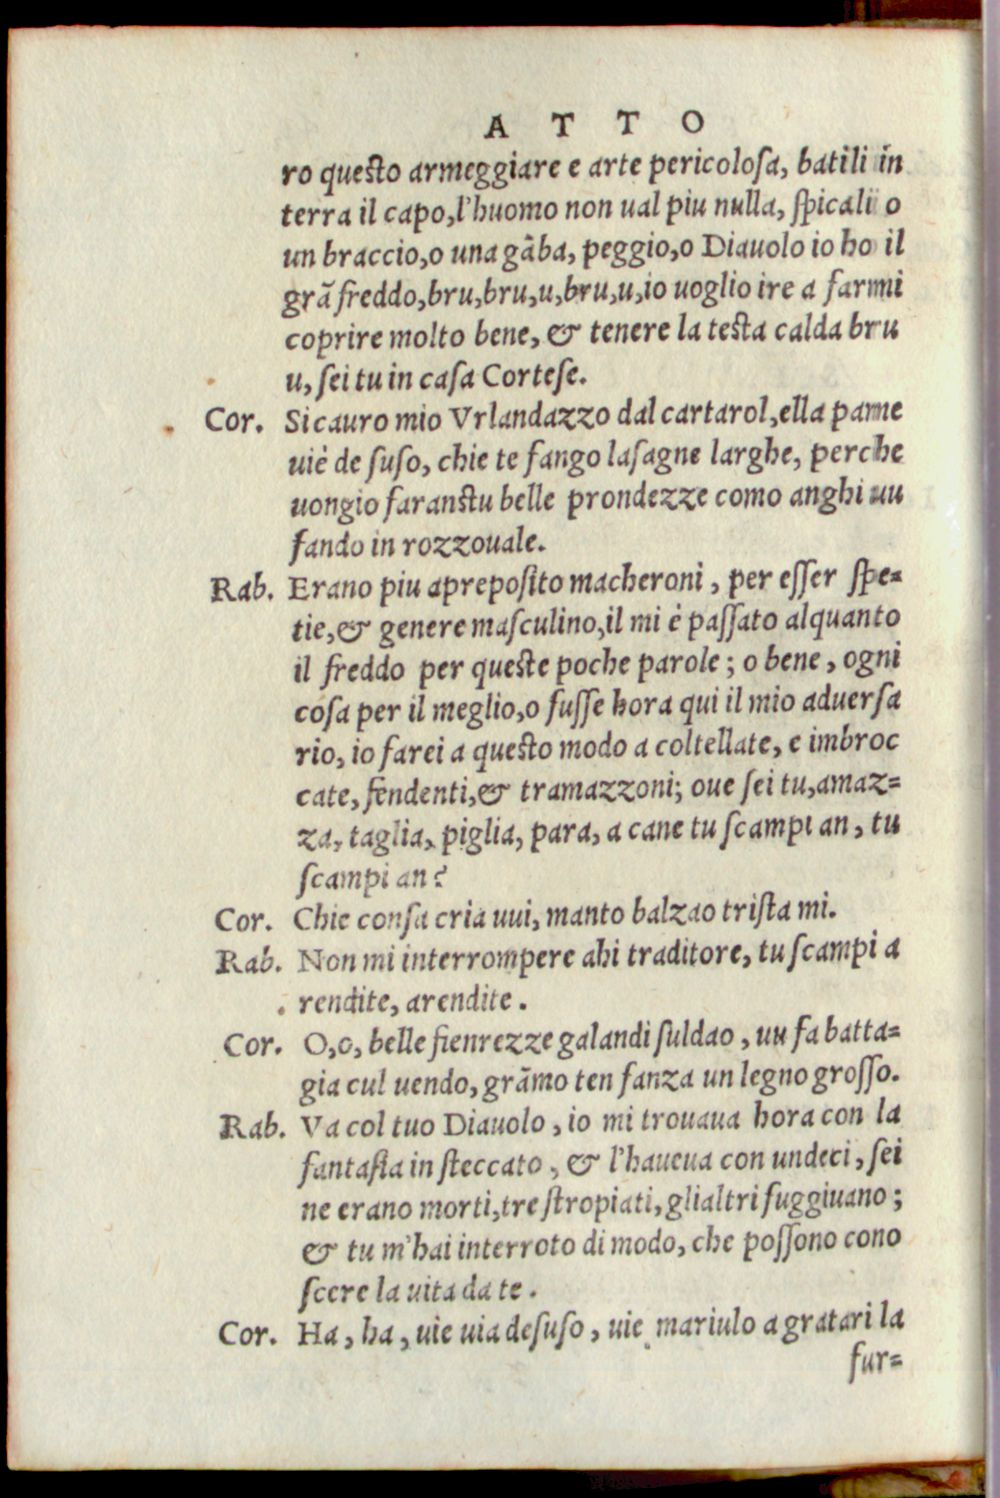 ATTO
ro questo armeggiare e arte pericolosa, batili in
terra il capo,l'huomo non ual piu nulla, spicali o
un braccio,o una gāba, peggio,o Diauolo io ho il
grā freddo,bru,bru,u,bru,u,io uoglio ire a farmi
coprire molto bene, & tenere la testa calda bru
u, sei tu in casa Cortese.
Cor. Si cauro mio Vrlandazzo dal cartarol,ella parme
uiè de suso, chie te fango lasagne larghe, perche
uongio faranstu belle prondezze como anghi uu
fando in rozzouale.
Rab. Erano piu apreposito macheroni, per esser spe=
tie,& genere masculino,il mi è passato alquanto
il freddo per queste poche parole; o bene, ogni
cosa per il meglio,o fusse hora qui il mio aduersa
rio, io farei a questo modo a coltellate, e imbroc
cate, fendenti,& tramazzoni; oue sei tu,amaz=
za, taglia, piglia, para, a cane tu scampi an, tu
scampi an?
Cor. Chie consa cria uui, manto balzao trista mi.
Rab. Non mi interrompere ahi traditore, tu scampi a
rendite, arendite.
Cor. O,o, belle fienrezze galandi suldao, uu fa batta=
gia cul uendo, grāmo ten fanza un legno grosso.
Rab. Va col tuo Diauolo, io mi trouaua hora con la
fantasia in steccato, & l'haueua con undeci, sei
ne erano morti,tre stropiati, glialtri fuggiuano;
& tu m'hai interroto di modo, che possono cono
scere la uita da te.
Cor. Ha, ha, uie uia desuso, uie mariulo a gratari la
fur=